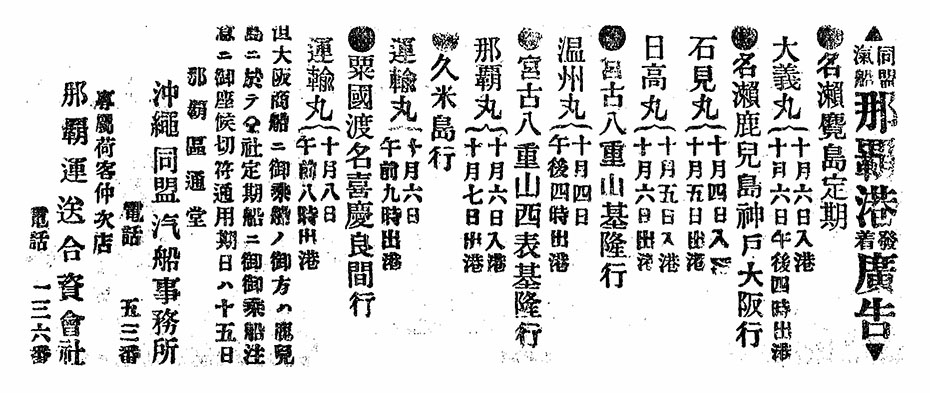 ▲同盟汽船那覇港發着廣告▼
●名瀬覺島定期
大義丸 十月六日入港
十月六日午後四時出港
●名瀬鹿兒島神戸大阪行
石見丸 十月四日入港
十月五日出港
日高丸 十月五日入港
十月六日出港
●宮古八重山基隆行
温州丸 十月四日
午後四時出港
●宮古八重山西表基隆行
那覇丸 十月六日入港
十月七日出港
●久米島行
運輸丸 十月六日
午前九時出港
●粟國渡名喜慶良間行
運輸丸 十月八日
午前八時出港
但大阪商船ニ御乗船ノ御方ハ鹿兒
島ニ於テ仝社定期船ニ御乗船注
意ニ御座候切符通用期日ハ十五日
那覇區通堂
沖繩同盟汽船事務所
電話 五三番
專屬荷客仲次店
那覇運送合資會社
電話 一三六番